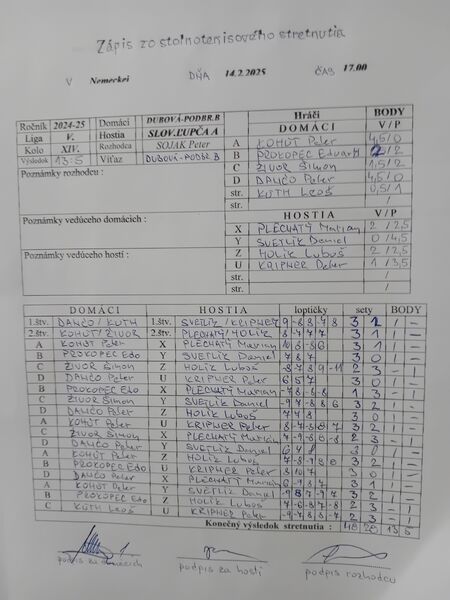 Zápis zo stolnotenisového stretnutia
V Nemeckej DŇA 14.2.2025 ČAS 17.00
Ročník 2024-25 Domáci DUBOVÁ-PODBR.B
Liga V. Hostia SLOV.ĽUPČA A
Kolo XIV. Rozhodca SOJAK Peter
Výsledok 13:5 Víťaz DUBOVÁ-PODBR.B
Poznámky rozhodcu :
Poznámky vedúceho domácich :
Poznámky vedúceho hostí :
Hráči BODY
DOMÁCI V/P
A KOHÚT Peter 4,5/0
B PROKOPEC Eduard 2/2
C ŽIVOR Šimon 1,5/2
D DANČO Peter 4,5/0
str. KÚTH Leoš 0,5/1
str.
HOSTIA V/P
X PLECHATÝ Marian 2/2,5
Y SVETLÍK Daniel 0/4,5
Z HOLÍK Ľuboš 2/2,5
U KRIPNER Peter 1/3,5
str. /
str. /
DOMÁCI HOSTIA loptičky sety BODY
1.štv. DANČO/KÚTH 1.štv. SVETLÍK/KRIPNER 3 1 1 -
2.štv. KOHÚT/ŽIVOR 2.štv. PLECHATÝ/HOLÍK 3 1 1 -
A KOHÚT Peter X PLECHATÝ Marian 3 1 1 -
B PROKOPEC Edo Y SVETLÍK Daniel 7 8 7 3 0 1 -
C ŽIVOR Šimon Z HOLÍK Ľuboš 2 3 - 1
D DANČO Peter U KRIPNER Peter 6 5 7 3 0 1 -
B PROKOPEC Edo X PLECHATÝ Marian 1 3 - 1
C ŽIVOR Šimon Y SVETLÍK Daniel 3 2 1 -
D DANČO Peter Z HOLÍK Ľuboš 7 7 8 3 0 1 -
A KOHÚT Peter U KRIPNER Peter 3 2 1 -
C ŽIVOR Šimon X PLECHATÝ Marian 2 3 - 1
D DANČO Peter Y SVETLÍK Daniel 6 4 8 3 0 1 -
A KOHÚT Peter Z HOLÍK Ľuboš 3 2 1 -
B PROKOPEC Edo U KRIPNER Peter 3 0 1 -
D DANČO Peter X PLECHATÝ Marian 3 1 1 -
A KOHÚT Peter Y SVETLÍK Daniel 3 2 1 -
B PROKOPEC Edo Z HOLÍK Ľuboš 2 3 - 1
C KÚTH Leoš U KRIPNER Peter 2 3 - 1
Konečný výsledok stretnutia : 48 28 13 5
podpis za domácich podpis za hostí podpis rozhodcu